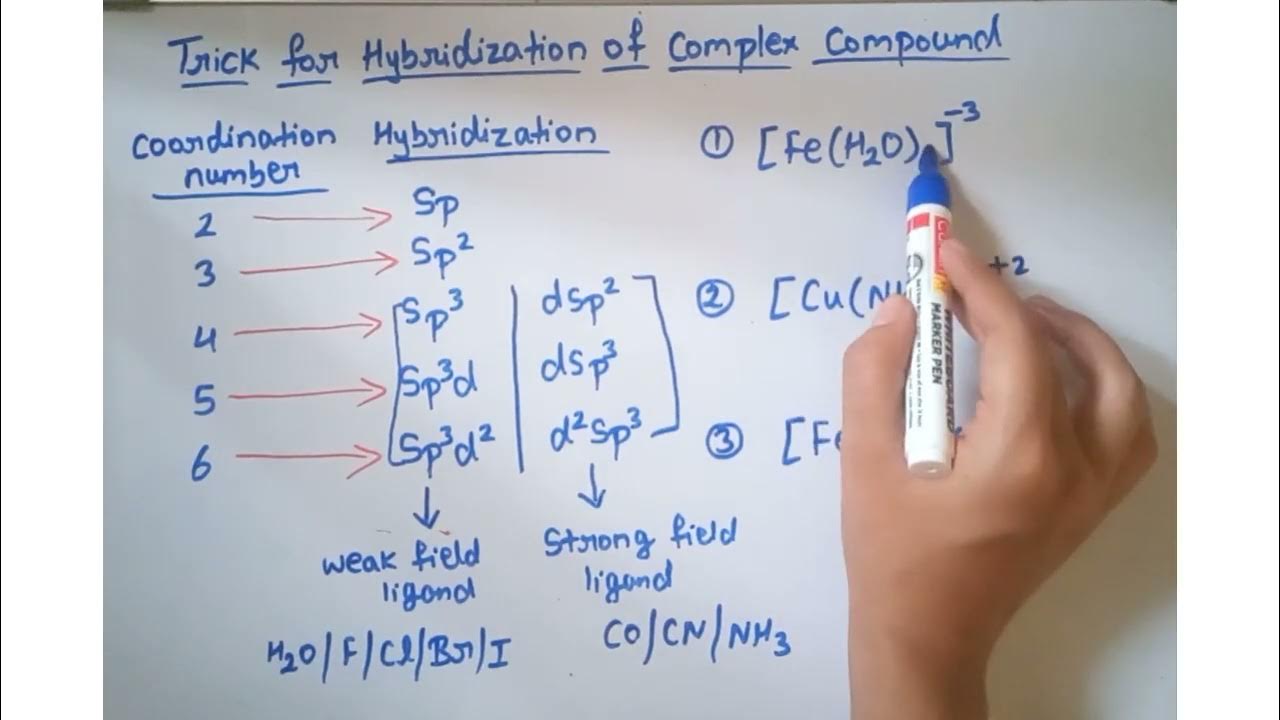 Trick for Hybridization of Complex Compound
Coordination number
Hybridization
2 → Sp
3 → Sp²
4 → Sp³ | dSp²
5 → Sp³d | dSp³
6 → Sp³d² | d²Sp³
↓ weak field ligand
H₂O/F/Cl/Br/I
↓ Strong field ligand
CO/CN/NH₃
① [Fe(H₂O) ]⁻³
② [Cu(N +2
③ [Fe
WHITEBOARD
MARKER PEN